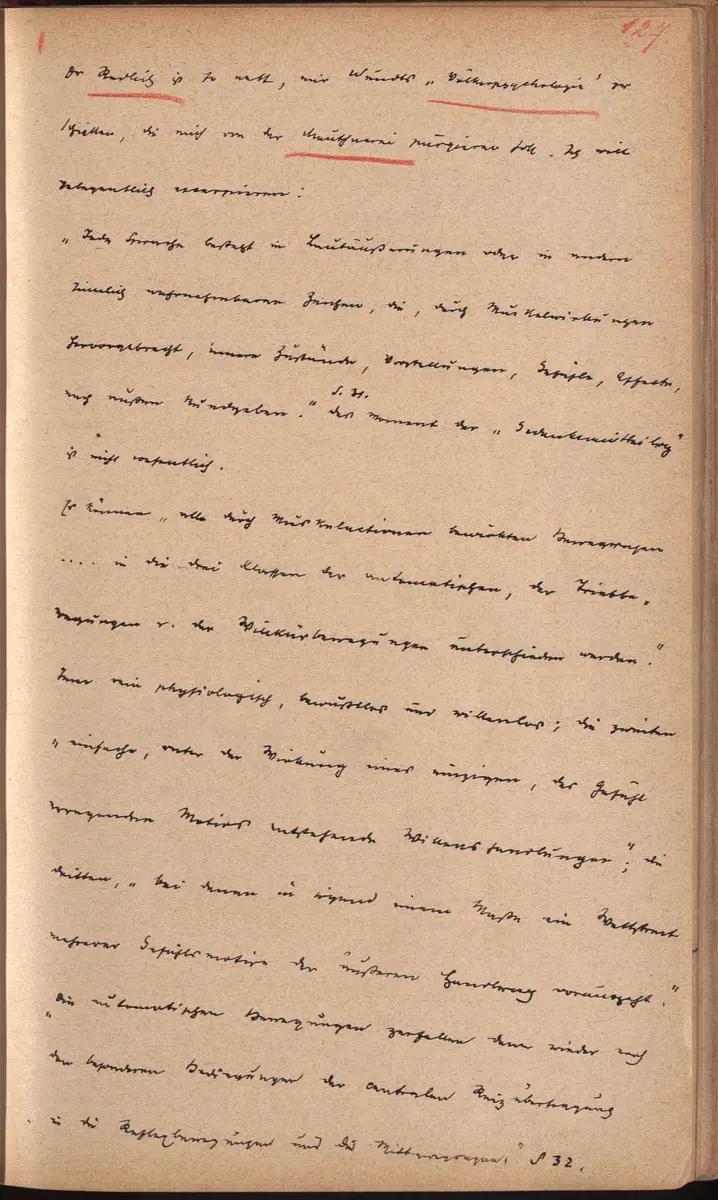 127.
Dr Redlich ist so nett, mir Wundts „Völkerpsychologie" zu
schicken, die mich von der Mauthnerei purgieren soll. Ich will
gelegentlich excerpieren:
„Jede Sprache besteht in Lautäußerungen oder in andern
sinnlich wahrnehmbaren Zeichen, die, durch Muskelwirkungen
hervorgebracht, innere Zustände, Vorstellungen, Gefühle, Affecte,
nach außen kundgeben." S. 31. Das Moment der „Gedankenmitteilung"
ist nicht wesentlich.
Es können „alle durch Muskelactionen bewirkten Bewegungen
.... in die drei Klassen der automatischen, der Triebbe-
wegungen u. der Willkürbewegungen unterschieden werden."
Jene rein physiologisch, bewußtlos und willenlos; die zweiten
„einfache, unter der Wirkung eines einzigen, das Gefühl
erregenden Motivs entstehende Willenshandlungen"; die
dritten, „bei denen in irgend einem Maße ein Wettstreit
mehrerer Gefühlsmotive der äußeren Handlung vorausgeht."
„Die automatischen Bewegungen zerfallen dann wieder nach
den besonderen Bedingungen der centralen Reizübertragung
in die Reflexbewegungen und die Mitbewegungen." S 32.